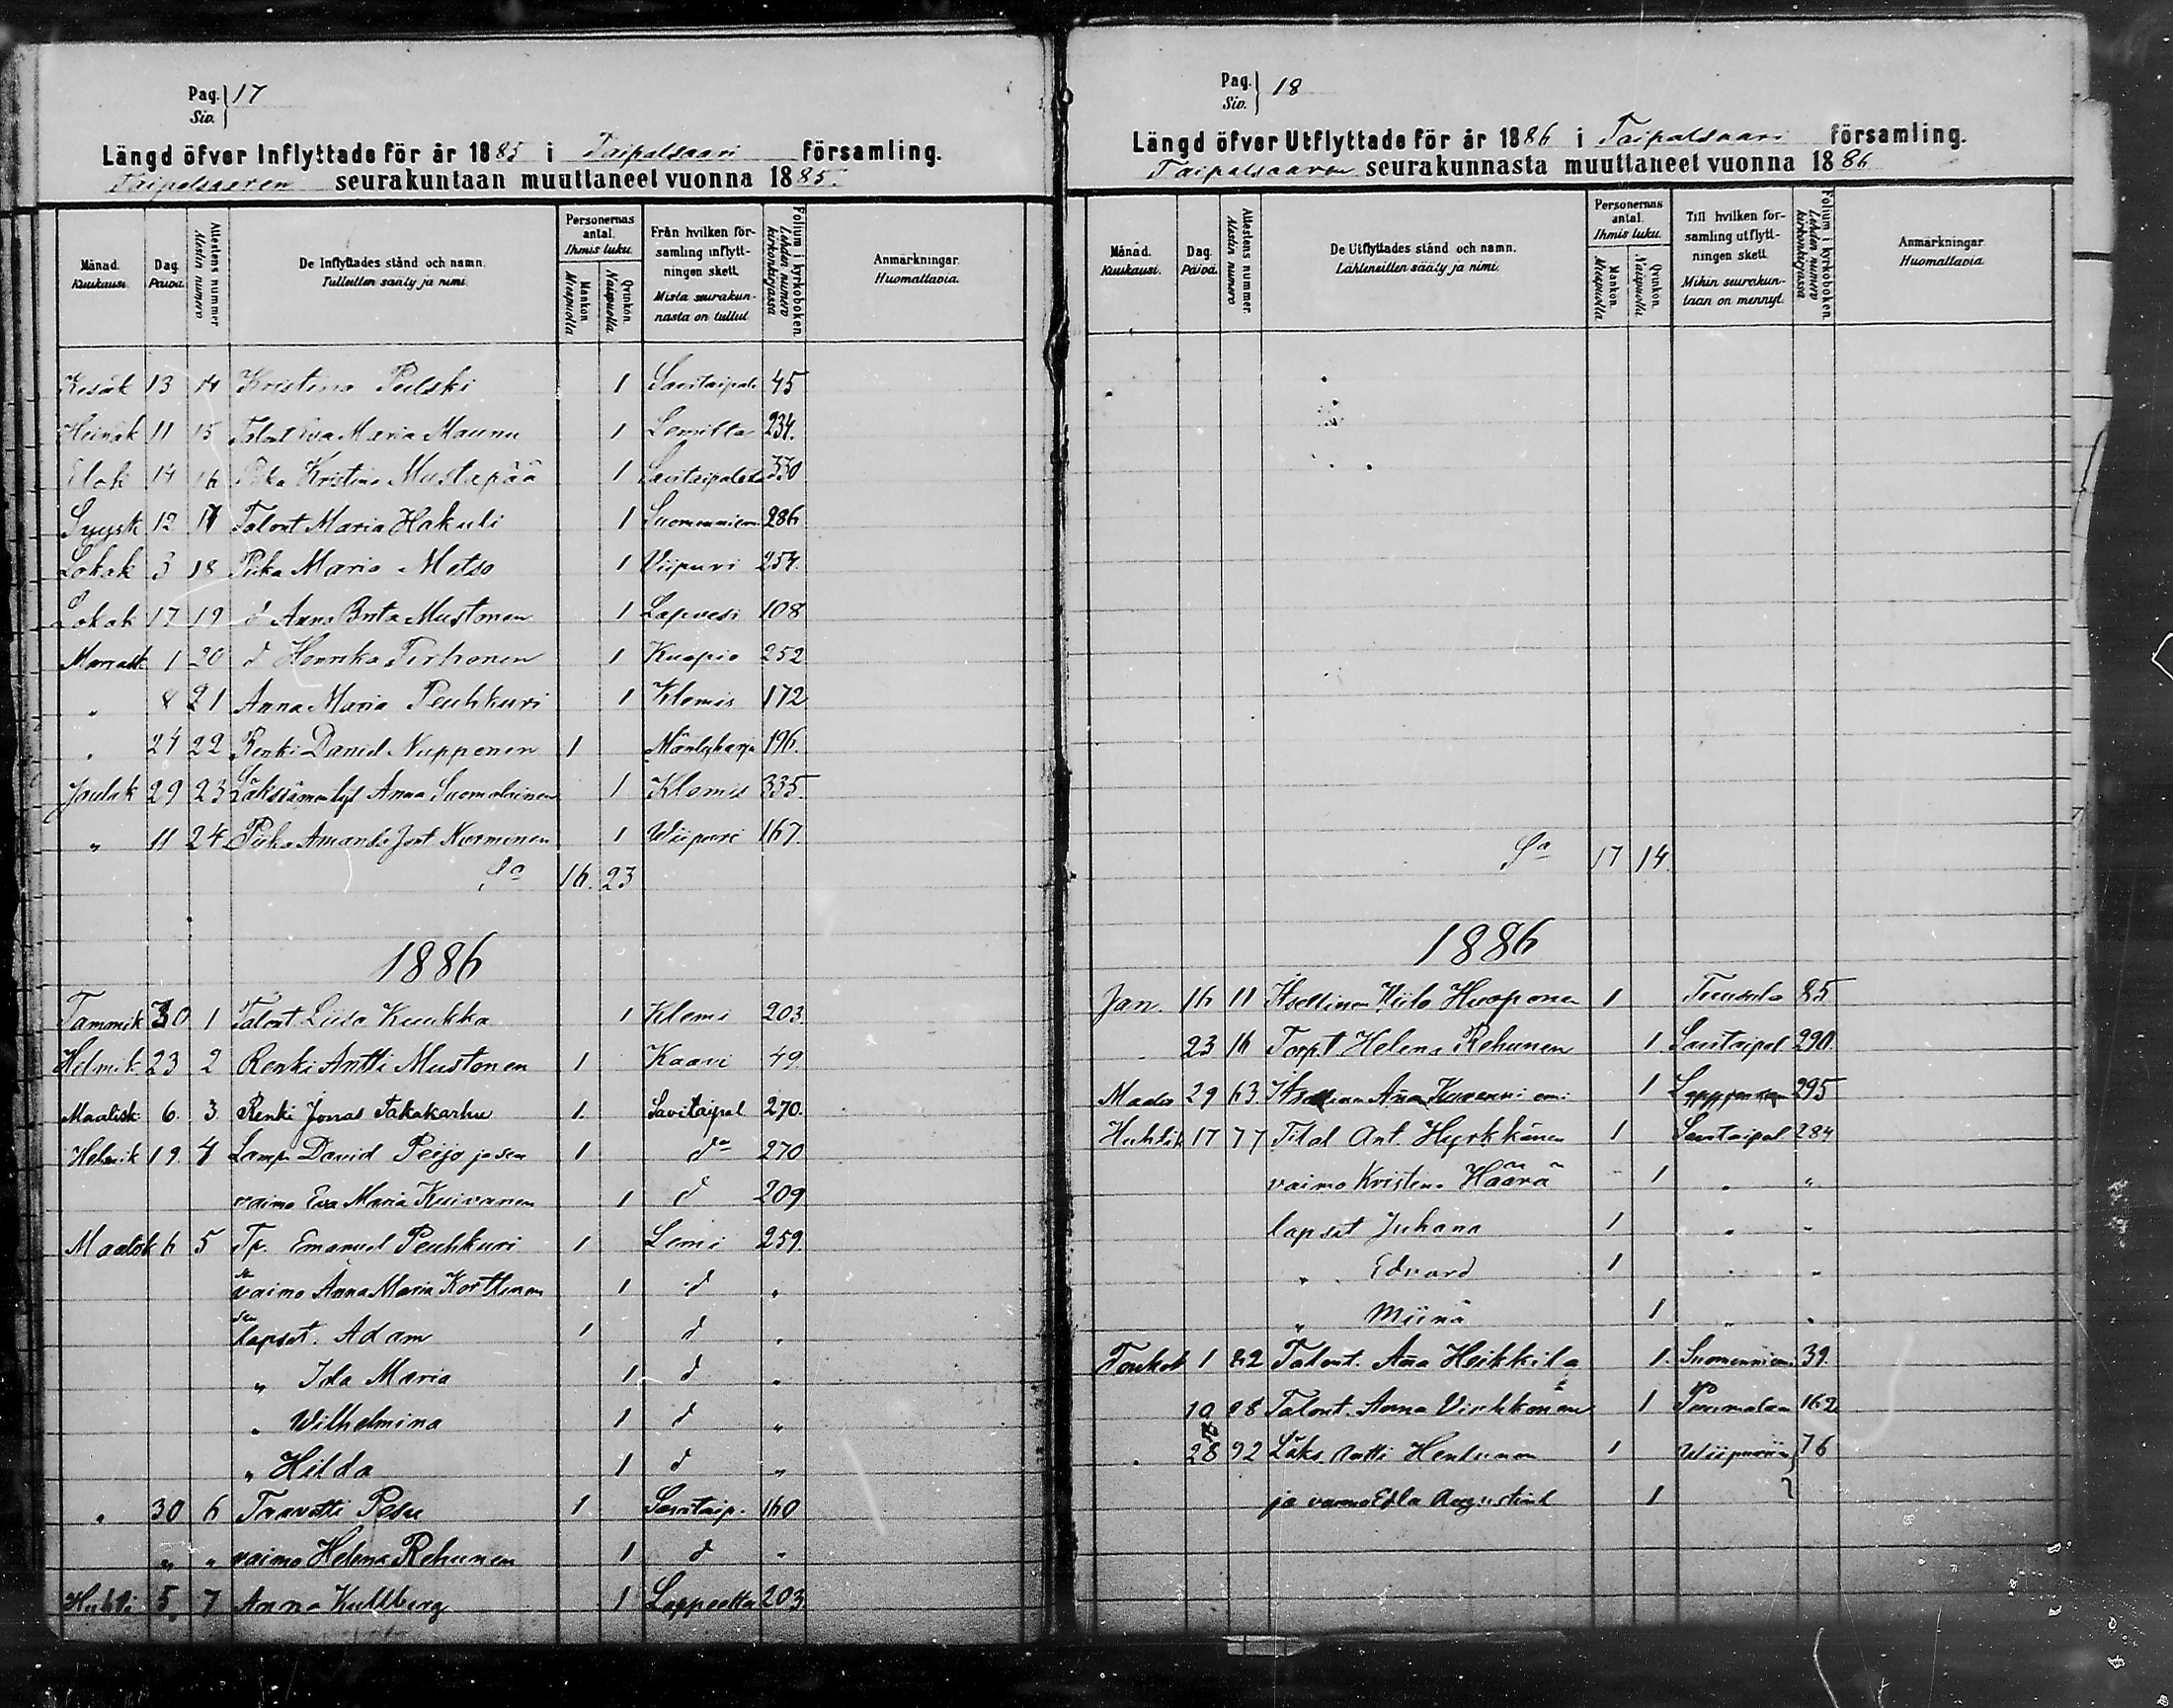 Pag. 17
Siv.
Längd öfver Inflyttade för år 1885 i Taipalsaari församling.
Taipalsaaren seurakuntaan muuttaneet vuonna 1885.
Månad. Kuukausi. Dag. Päivä. Attestens nummer Allestin numero De Inflyttades stånd och namn. Tulleitten sääty ja nimi. Personernas antal. Ihmis luku. Mankön. Miespuolia Qvinkön. Naispuolia Från hvilken församling inflyttningen skett. Mistä seurakunnasta on tullut. Folium i kyrkoboken. Lehden numero kirkonkirjassa Anmärkningar. Huomattavia.
Kesäk 13 14 Kristina Pulski 1 Savitaipale 45
Heinäk 11 15 Talont Eva Maria Maunu 1 Lemiltä 234.
Elok 14 16 Piika Kristina Mustapää 1 Savitaipaleelta 330
Syysk 12 17 Talont Maria Hakuli 1 Suomenniemi 286
Lokak 3 18 Piika Maria Metso 1 Viipuri 254.
Lokak 17 19 d Anna Brita Mustonen 1 Lapvesi 108
Marrask 1 20 d Henrika Tirhonen 1 Kuopio 252
„ 8 21 Anna Maria Peuhkuri 1 Klemis 172
„ 24 22 Renki David Nupponen 1 Mäntyharju 196.
Jouluk 29 23 Anna Suomalainen 1 Klemis 335.
„ 11 24 Piika Amanda Kurminen 1 Wiipuri 167.
Sa 16. 23
1886
Tammik 30 1 Talont Liisa Kuukka 1 Klemi 203.
Helmik 23 2 Renki Antti Mustonen 1 Kaavi 49.
Maalisk. 6. 3. Renki Jonas Takakarhu 1. Savitaipal 270.
Helmik 19. 4 Lamp. David Peijo ja sen 1 do 270
vaimo Eva Maria Kuivanen 1 d 209
Maalisk 6 5 Tp. Emanuel Peuhkuri 1 Lemi 259.
vaimo Anna Maria Korttinen 1 d „
lapset. Adam 1 d „
„ Ida Maria 1 d „
„ Wilhelmina 1 d „
„ Hilda 1 d „
„ 30 6 Taavetti Pesu 1 Savitaip. 160
„ „ vaimo Helena Rehunen 1 d „
Huhti 5. 7 Anna Kullberg 1 Lappeetta 203
Pag. 18
Siv.
Längd öfver Utflyttade för år 1886 i Taipalsaari församling.
Taipalsaaren seurakunnasta muuttaneet vuonna 1886
Månad. Kuukausi. Dag. Päivä. Attestens nummer. Allestin numero De Utflyttades stånd och namn. Lähteneitten sääty ja nimi. Personernas antal. Ihmis luku. Mankön. Miespuolia Qvinkön. Naispuolia Till hvilken församling utflyttningen skett. Mihin seurakuntaan on mennyt. Folium i kyrkoboken. Lehden numero kirkonkirjassa Anmärkningar. Huomattavia
Sa 17 14.
1886
Jan. 16 11 Itsellinen Huoponen 1 Tuusula 85
23 16 Torpt Helena Rehunen 1. Savitaipal 290.
29 63. Anna 1 295
Huhtik 17 77 Tilal Ant. Hyrkkänen 1 Savitaipal 284
vaimo Kristina Häärä 1 „ „
lapset Juhana 1 „ „
„ Edvard 1 „ „
„ Miina 1 „ „
Toukok 1 82 Talont. Anna Heikkilä 1. Suomenniemi 39.
10 88 Talont. Anna Virkkonen 1 Puumalaan 162
„ 28 92 Läks Antti Hentunen 1 Wiipuriin 76
ja vaimo Edla 1